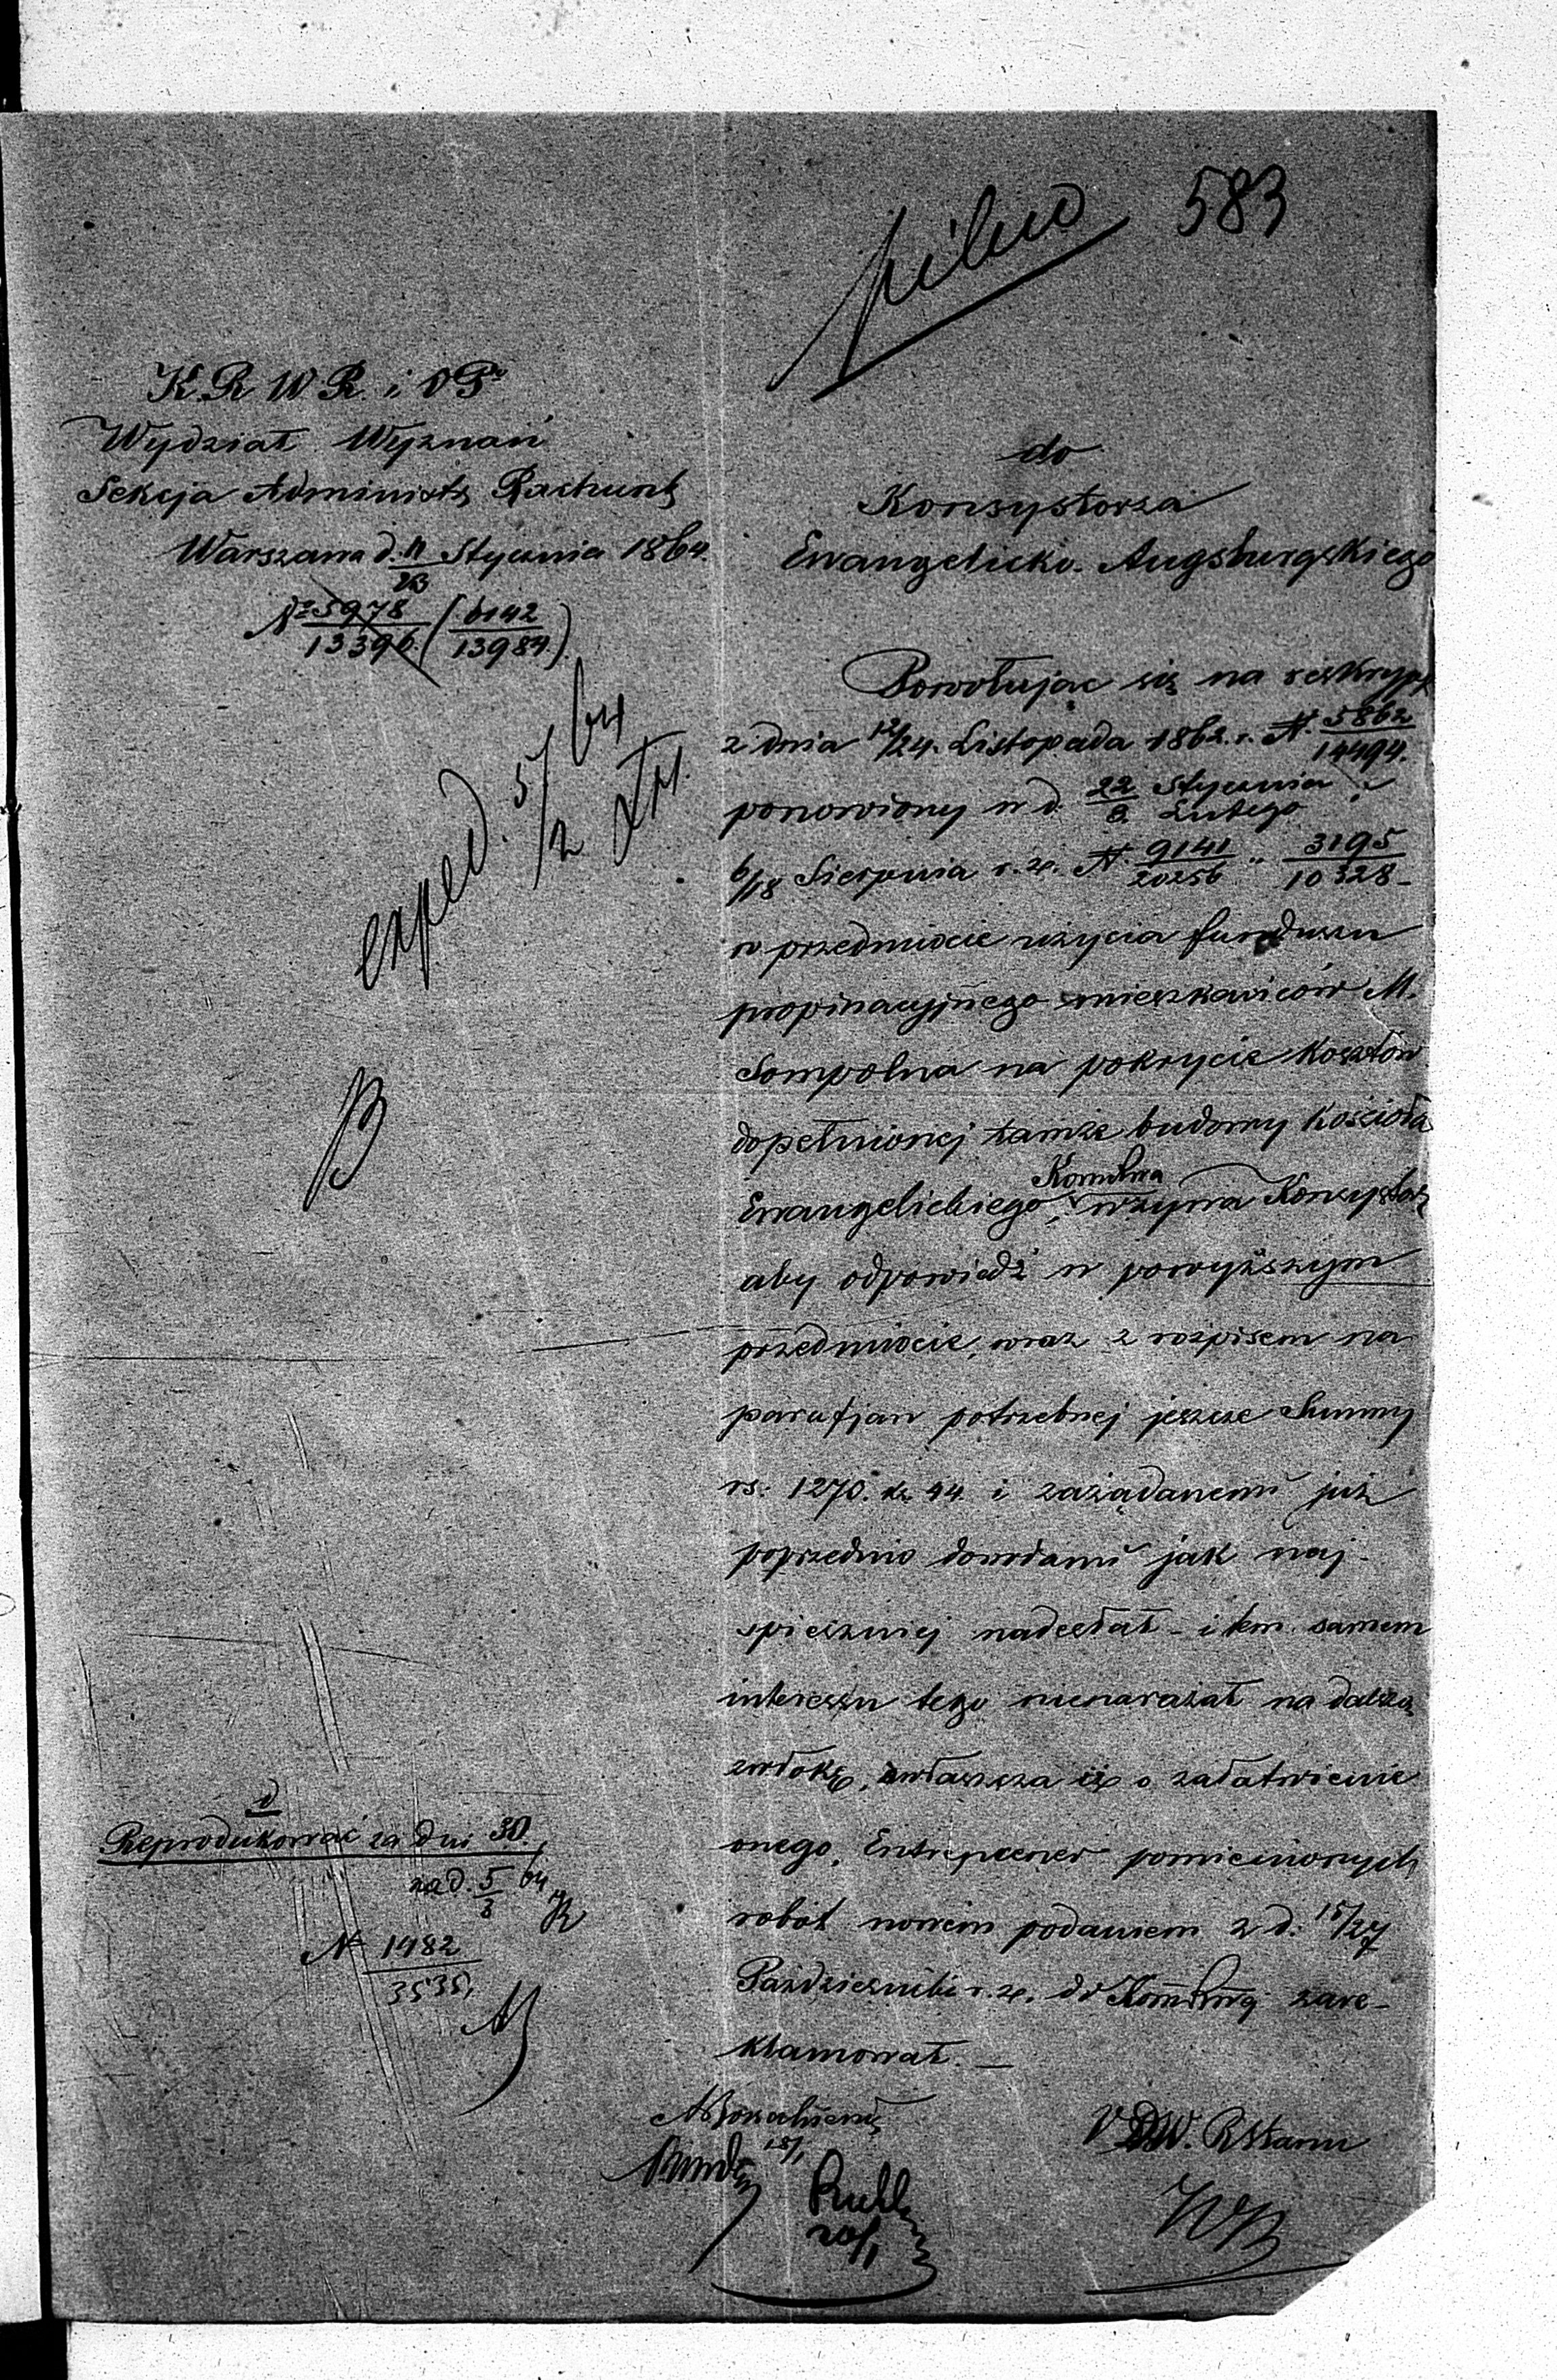 583
pilno
K. R. W. R. i O. P.
Wydział Wyznań
Sekcja Administr Rachunk
Warszawa d. 11/23 Stycznia 1864.
№ 5978/13396. (6142/13984.)
exped. 5/2 64
do
Konsystorza
Ewangelicko-Augsburgskiego
Powołując się na reskrypt
z dnia 12/24. Listopada 1862. r. N. 5862/14494.
ponowiony w d. 22 Stycznia/3. Lutego i
6/18 Sierpnia r. z. N. 9141/20256 " 3195/10328 -
w przedmiocie użycia funduszu
propinacyjnego mieszkańców M.
Sompolna na pokrycie kosztów
dopełnionej tamże budowy Kościoła
Ewangelickiego, Kommissya wzywa Konsystorz
aby odpowiedź w powyższym
przedmiocie, wraz z rozpisem na
parafjan potrzebnej jeszcze Summy
rs. 1270. k. 44 i zażądanemi już
poprzednio dowodami jak naj-
spieszniej nadesłał - i tem samem
interessu tego nienarażał na dalszą
zwłokę, zwłaszcza iż o załatwienie
onego, Entreprener pomienionych
robót nowem podaniem z d: 15/27
Października r. z. do Kommissyi zare-
kłamował. —
Reprodukować za dni 30.
za d. 5/3 64
N 1482/3535,
18/1
20/1
V D W. R Stanu